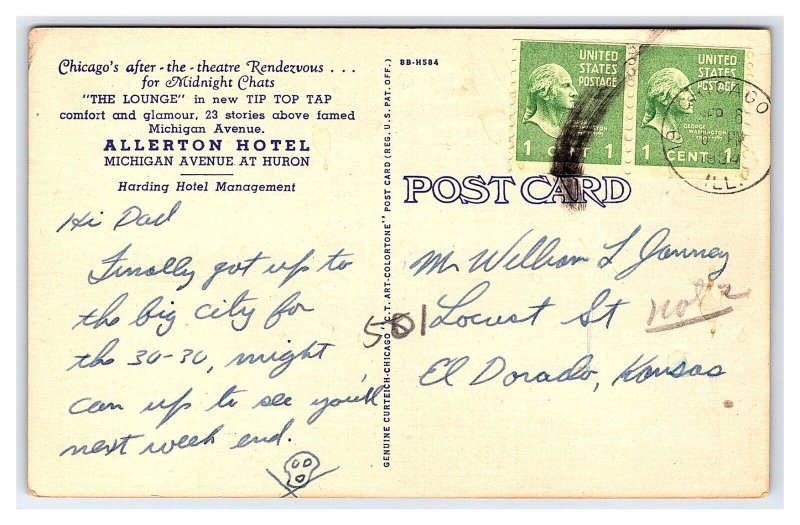 Chicago's after-the-theatre Rendezvous ...
for Midnight Chats
"THE LOUNGE" in new TIP TOP TAP
comfort and glamour, 23 stories above famed
Michigan Avenue.
ALLERTON HOTEL
MICHIGAN AVENUE AT HURON
Harding Hotel Management
Hi Dad
Finally got up to
the big city for
the 30-30, might
can up to see you'll
next week end.
8B-H584
GENUINE CURTEICH-CHICAGO "C.T. ART-COLORTONE" POST CARD (REG. U.S. PAT. OFF.)
UNITED STATES POSTAGE
GEORGE WASHINGTON
1 CENT 1
UNITED STATES POSTAGE
GEORGE WASHINGTON
1 CENT
CHICAGO
ILL.
POST CARD
Mr William L Janney
501 Locust St
El Dorado, Kansas